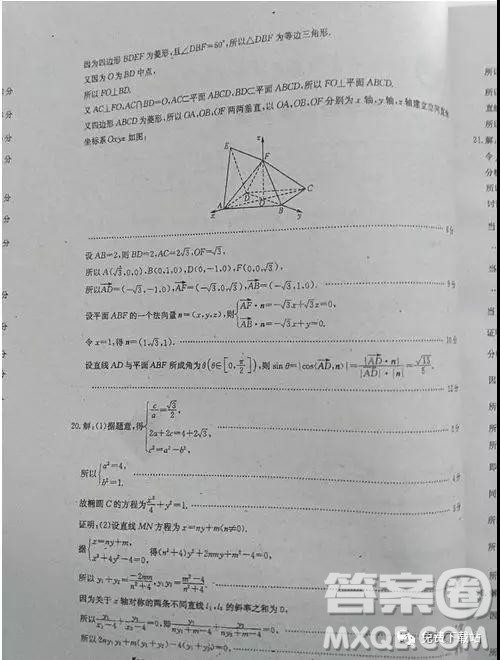 因为四边形BDEF为菱形,且∠DBF=60°,所以△DBF为等边三角形.
又因为O为BD中点,
所以FO⊥BD.
又AC⊥FO,AC∩BD=O,AC⊂平面ABCD,BD⊂平面ABCD,所以FO⊥平面ABCD.
又四边形ABCD为菱形,所以OA,OB,OF两两垂直,以OA,OB,OF分别为x轴,y轴,z轴建立空间直角
坐标系Oxyz如图:
z
E
F
D
C
A
O
B
x
y
设AB=2,则BD=2,AC=2√3,OF=√3,
所以A(√3,0,0),B(0,1,0),D(0,-1,0),F(0,0,√3),
所以AD=(-√3,-1,0),AF=(-√3,0,√3),AB=(-√3,1,0). 9分
设平面ABF的一个法向量n=(x,y,z),则{AF·n=-√3x+√3z=0,
AB·n=-√3x+y=0.
令x=1,得n=(1,√3,1). 10分
设直线AD与平面ABF所成角为θ(θ∈[0,π/2]),则sin θ=|cos⟨AD,n⟩|=|AD·n|/|AD|·|n|=√15/5.
12分
20.解:(1)据题意,得{c/a=√3/2,
2a+2c=4+2√3, 2分
c²=a²-b²,
所以{a²=4,
b²=1. 4分
故椭圆C的方程为x²/4+y²=1. 5分
证明:(2)设直线MN方程为x=ny+m(n≠0).
据{x=ny+m,
x²+4y²-4=0, 得(n²+4)y²+2mny+m²-4=0,
所以y₁+y₂=-2mn/n²+4,y₁y₂=m²-4/n²+4.
因为关于x轴对称的两条不同直线l₁,l₂的斜率之和为0,
所以2ny₁y₂+m(y₁+y₂)-4(y₁+y₂)=0.
21.解
答案圈
MXQE.COM